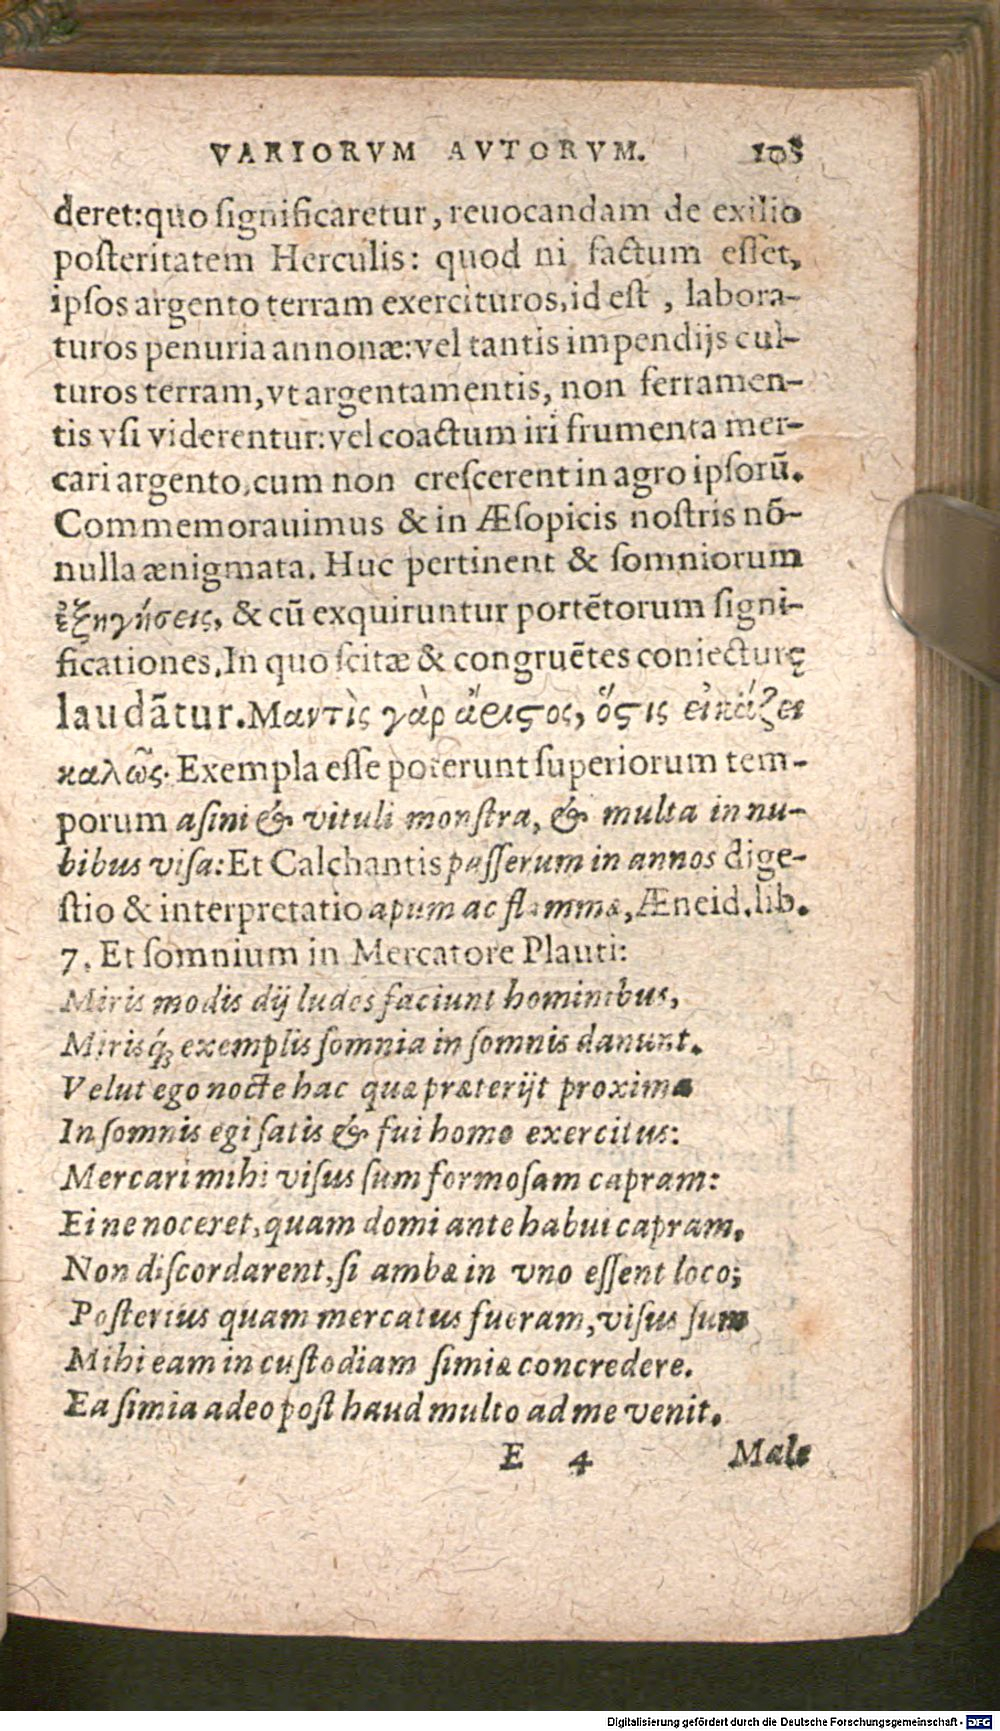 VARIORVM AVTORVM. 105
deret:quo ſignificaretur, reuocandam de exilio
poſteritatem Herculis: quod ni factum eſſet,
ipſos argento terram exercituros,id eſt , labora-
turos penuria annonæ:vel tantis impendijs cul-
turos terram,vt argentamentis, non ferramen-
tis vſi viderentur:vel coactum iri frumenta mer-
cari argento,cum non creſcerent in agro ipſorũ.
Commemorauimus & in Æſopicis noſtris nō-
nulla ænigmata. Huc pertinent & ſomniorum
ἐξηγήσεις, & cū exquiruntur portētorum ſigni-
ficationes.In quo ſcitæ & congruētes coniecturę
laudātur.Μαντὶς γὰρ ἄριςος, ὅςις εἰκάζει
καλῶς. Exempla eſſe poterunt ſuperiorum tem-
porum aſini & vituli monſtra, & multa in nu-
bibus viſa: Et Calchantis paſſerum in annos dige-
ſtio & interpretatio apum ac flammæ, Æneid.lib.
7. Et ſomnium in Mercatore Plauti:
Miris modis dij ludos faciunt hominibus,
Mirisq́; exemplis ſomnia in ſomnis danunt.
Velut ego nocte hac quæ præterijt proxima
In ſomnis egi ſatis & fui homo exercitus:
Mercari mihi viſus ſum formoſam capram:
Ei ne noceret,quam domi ante habui capram,
Non diſcordarent,ſi ambæ in vno eſſent loco;
Poſterius quam mercatus fueram,viſus ſum
Mihi eam in cuſtodiam ſimiæ concredere.
Ea ſimia adeo poſt haud multo ad me venit.
E 4 Male
Digitalisierung gefördert durch die Deutsche Forschungsgemeinschaft - DFG